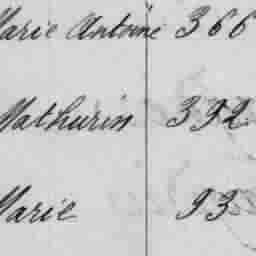 Marie Antoine 366
Mathurin 392
Marie 93